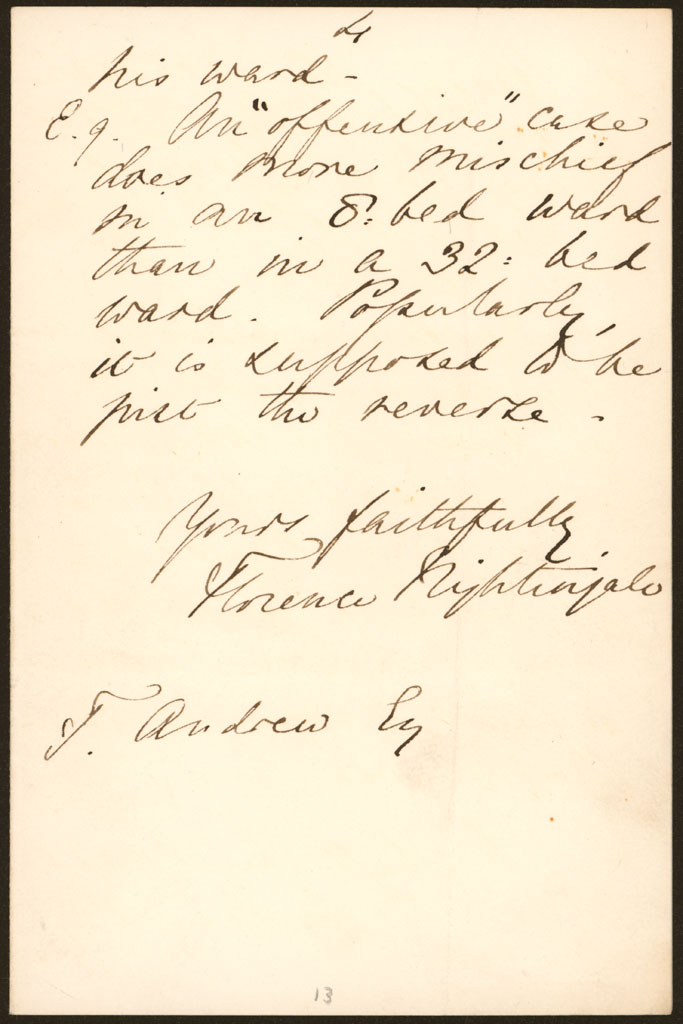 his ward -
E.g. An "offensive" case
does more mischief
in an 8=bed ward
than in a 32=bed
ward. Popularly,
it is supposed to be
just the reverse -
Yours faithfully
Florence Nightingale
T. Andrew Esq
13